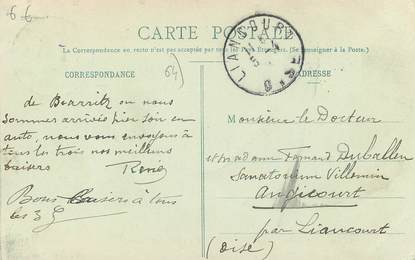 6 6
CARTE POSTALE
La Correspondance en recto n'est pas acceptée par tous les Pays Etrangers. (Se renseigner à la Poste.)
CORRESPONDANCE
64)
ADRESSE
LIANCOURT
de Biarritz ou nous
sommes arrivés hier soir en
auto, nous vous envoyons à
tous les trois nos meilleurs
baisers
René
Bons baisers à tous
les 3
Monsieur le Docteur
et madame Fernand Duballen
Sanatorium Villemin
Angicourt
par Liancourt
(Oise)